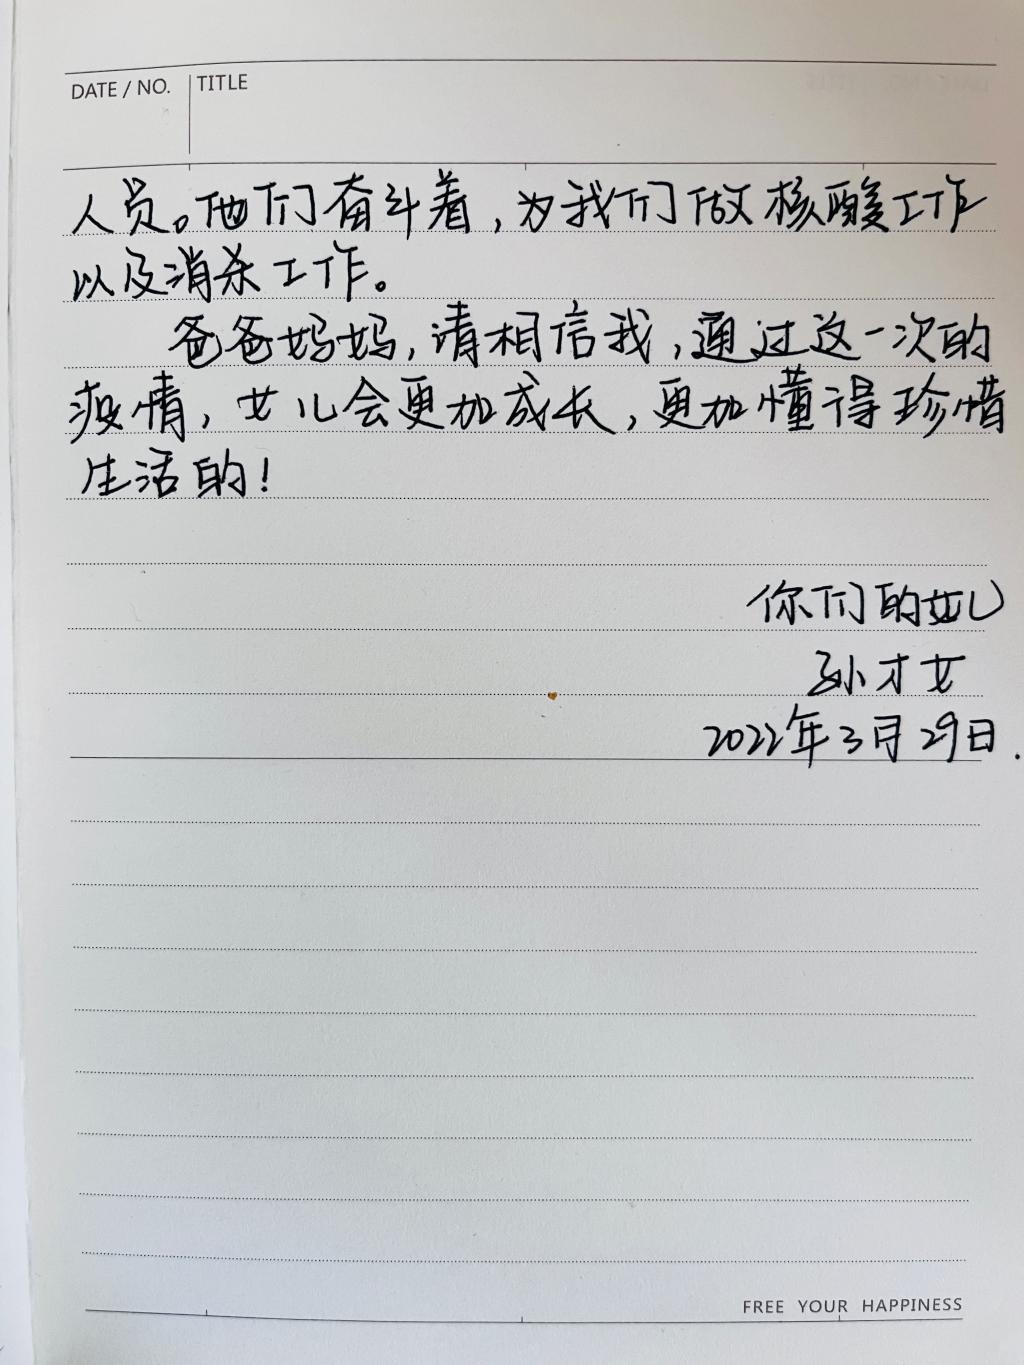 DATE / NO.
TITLE
人员。他们奋斗着，为我们做核酸工作
以及消杀工作。
爸爸妈妈，请相信我，通过这一次的
疫情，女儿会更加成长，更加懂得珍惜
生活的！
你们的女儿
孙才女
2022年3月29日.
FREE YOUR HAPPINESS